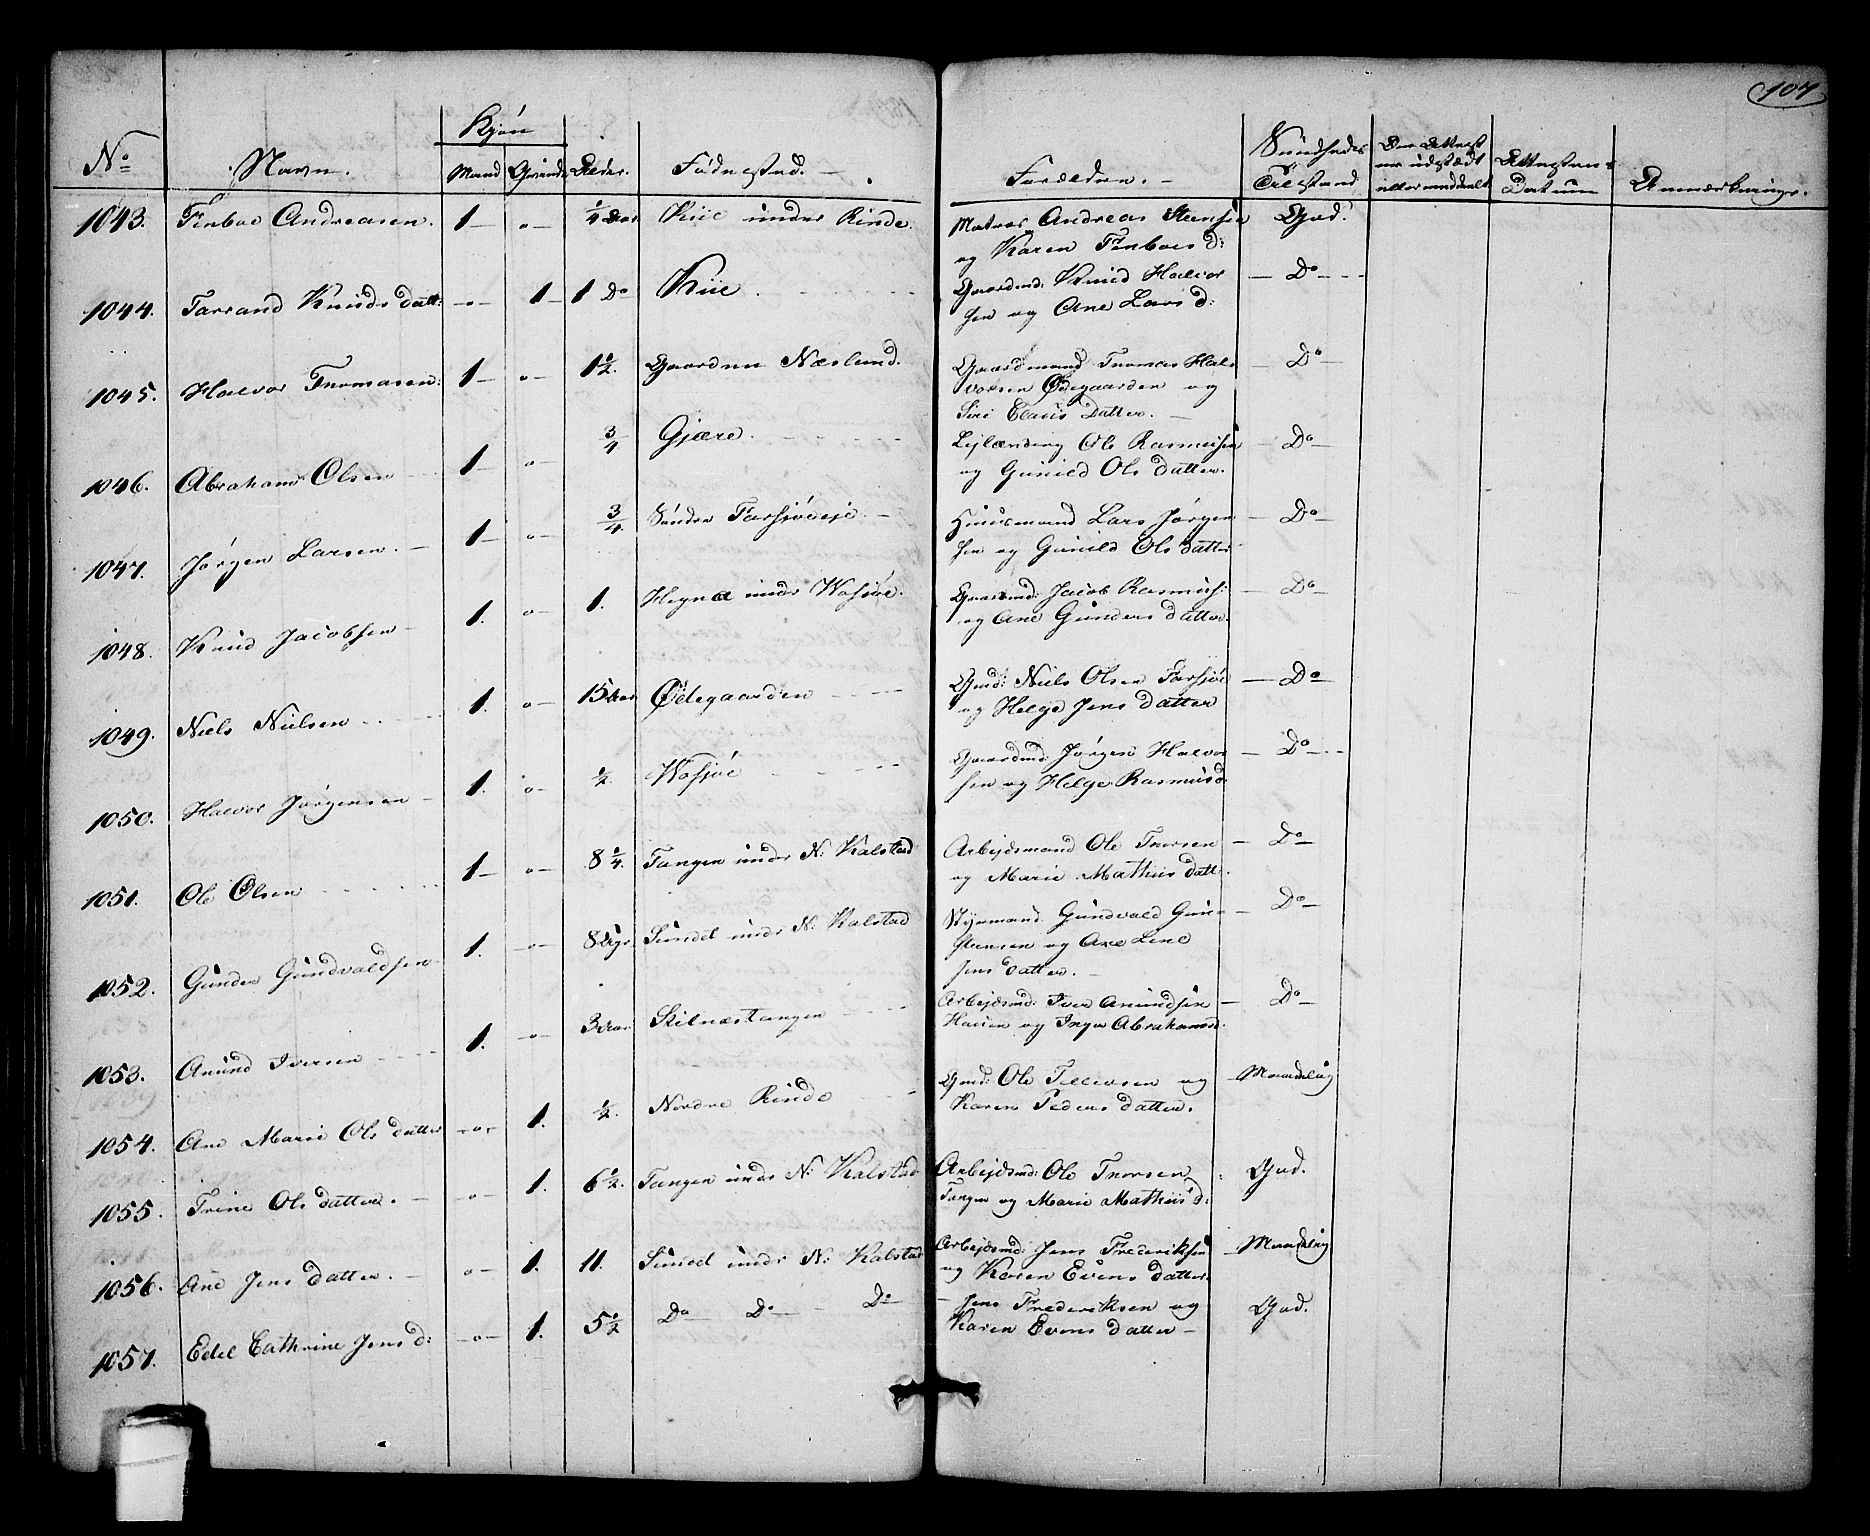 107
No Navn. Kjön Mand Qvinde Alder. Födested. Forældre. Sundheds Tilstand Om Attest er udstædt eller meddeelt Attestens Datum Anmærkninger.
1043. Tinboe Andreasen. 1 o 1/4 Aar Kiil under Rinde. Matros Andreas Steensen God.
og Karen Tinboes d:
1044. Tarrand Knuds datt: o 1 1 Do Kiil Gaardmd: Knud Halvor Do
sen og Ane Lars d:
1045. Halvor Thomasen 1 o 1 1/2. Gaarden Næslund. Gaardmand Thomas Hal Do
vorsen Ødegaarden og
Siri Claus datter.
1046. Abraham Olsen 1 o 3/4 Gjære. Lejlænding Ole Rasmusen Do
og Gunild Ols datter.
1047. Jörgen Larsen. 1 o 3/4 Söndre Farsjöeje. Huusmand Lars Jörgen Do
sen og Gunild Ols datter
1048. Knud Jacobsen 1. o 1. Hegna under Wasjöe. Gaardmd: Jacob Rasmus: Do
og Ane Gunders datter.
1049. Niels Nielsen 1. o 15 Aar Ødegaarden Gmd: Niels Olsen Farsjöe Do
og Helge Jens datter
1050. Halvor Jörgensen 1. o 1/2 Wasjöe Gaardmd: Jörgen Halvor Do
sen og Helge Rasmusd.
1051. Ole Olsen 1 o 8 1/4. Tangen under N: Kalstad Arbejdsmand Ole Thorsen Do
og Marie Mathiis datt:
1052. Gunder Gundvaldsen 1. o 8 Sundet under N: Kalstad Styrmand Gundvald Do
og Ane Line
Jens datter.
1053. Anund Iversen 1. o 3 Aar Skilnæstangen Arbejdsmd: Iver Anundsen Do
og Inger Abrahamsd.
1054. Ane Marie Ols datter o 1. 1/2. Nordre Rinde Gmd: Ole Tellevsen og Maadelig
Karen Peders datter.
1055. Trine Ols datter. o 1. 6 1/2. Tangen under N: Kalstad Arbejdsmd: Ole Thorsen God.
Tangen og Marie Mathiis d:
1056. Ane Jens datter. o 1. 11. Sundet under N: Kalstad Arbejdsmd: Jens Frederiksen Maadelig
og Karen Evens datter.
1057. Edel Cathrine Jens d: o 1. 5 1/2 Do Do Do Jens Frederiksen og God.
Karen Evens datter